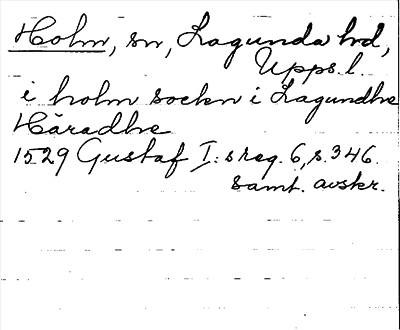 Holm, sn, Lagunda hd,
Upps. l.
i holm sockn i Lagundhe
Häradhe
1529 Gustaf I:s reg. 6, s. 346.
samt. avskr.